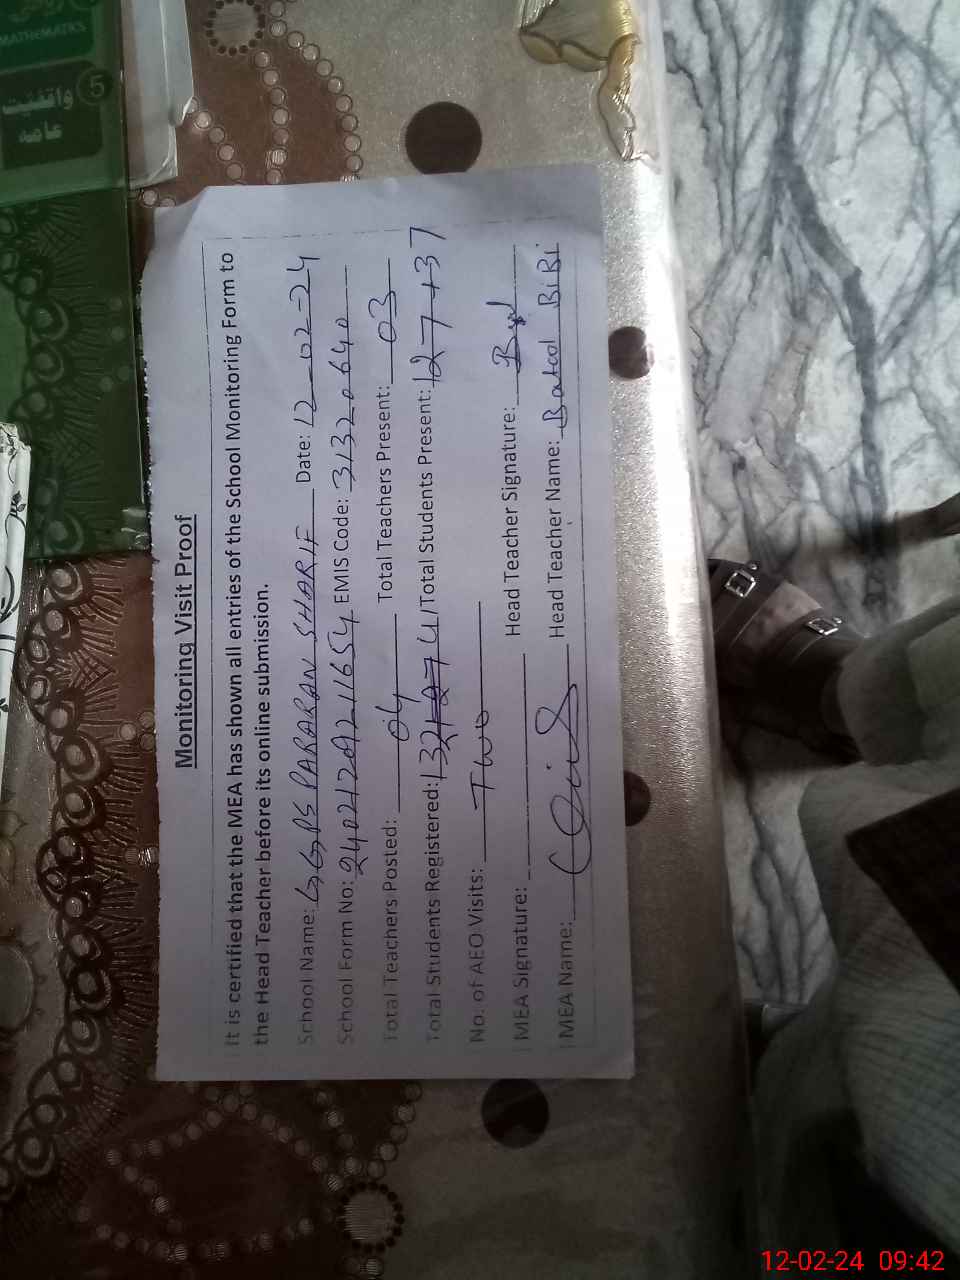 MATHEMATICS
5 واقفیت
عامہ
Monitoring Visit Proof
It is certified that the MEA has shown all entries of the School Monitoring Form to
the Head Teacher before its online submission.
School Name: GGPS PARARAN SHARIF Date: 12-02-24
School Form No: EMIS Code: 31320640
Total Teachers Posted: 04 Total Teachers Present: 03
Total Students Registered: Total Students Present: 127+37
No. of AEO Visits: Two
MEA Signature: Head Teacher Signature:
MEA Name: Head Teacher Name: Batool BiBi
12-02-24 09:42